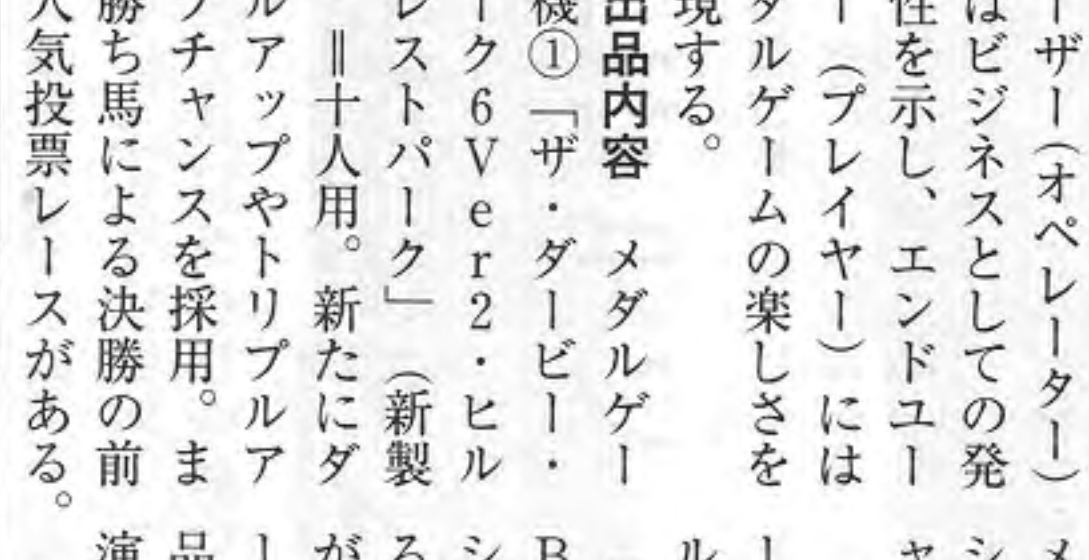 ーザー(オペレーター)
はビジネスとしての発
性を示し、エンドユー
ー(プレイヤー)には
ダルゲームの楽しさを
現する。
出品内容 メダルゲー
機①「ザ・ダービー・
ーク6Ver2・ヒル
レストパーク」(新製
=十人用。新たにダ
ルアップやトリプルア
プチャンスを採用。ま
勝ち馬による決勝の前
人気投票レースがある。